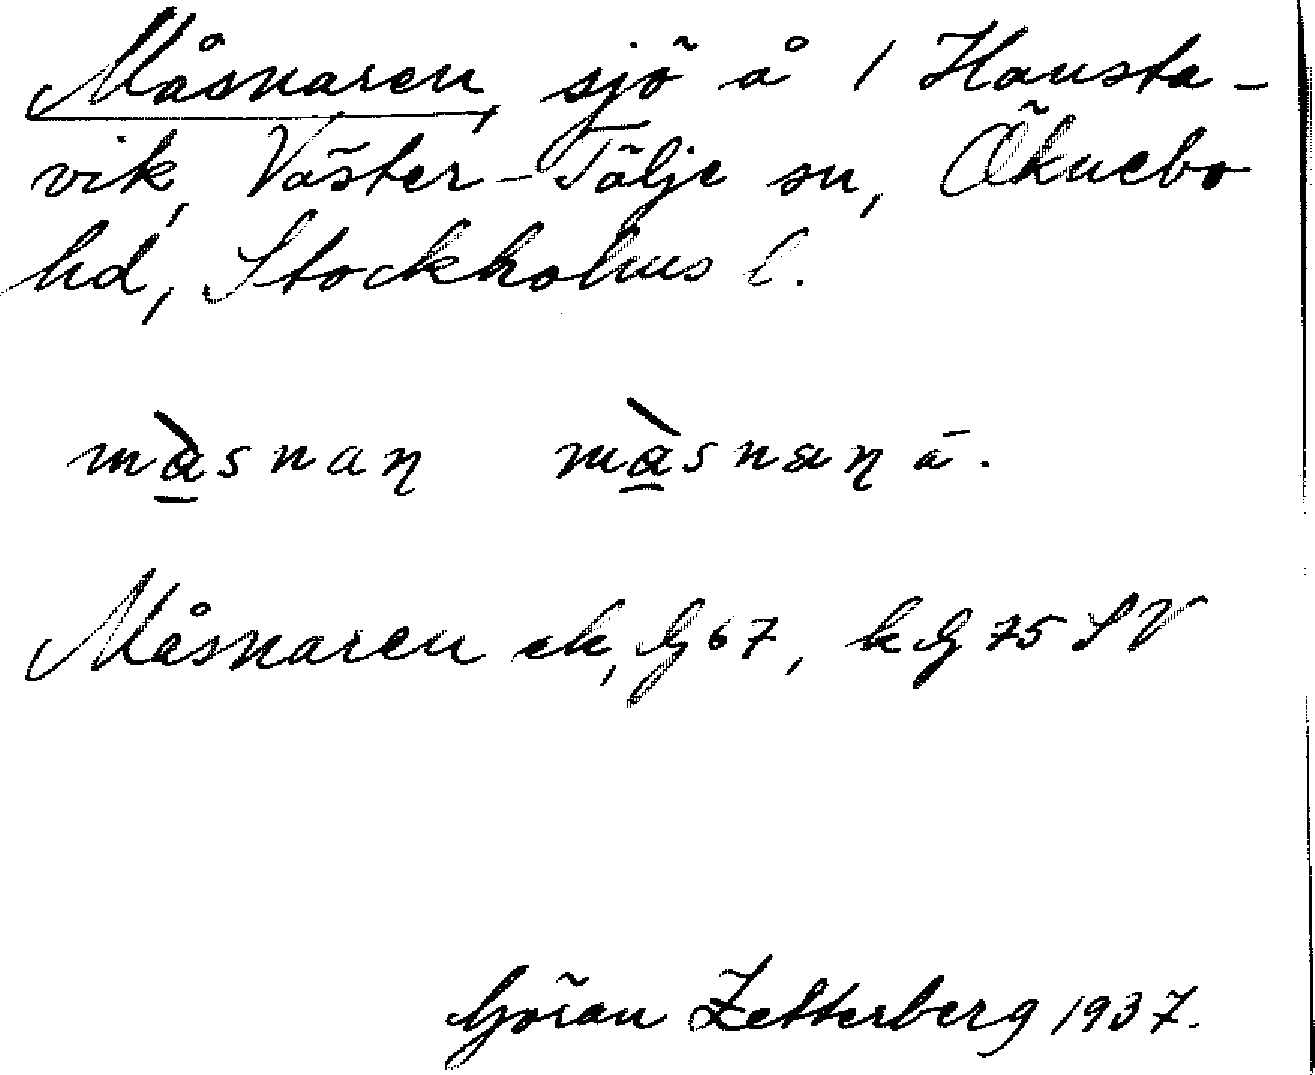 Måsnaren, sjö å 1 Hansta-
vik, Väster-Tälje sn, Öknebo
hd, Stockholms l.
Måsnaren ek, G 67, k G 75 SV
Göran Zetterberg 1937.